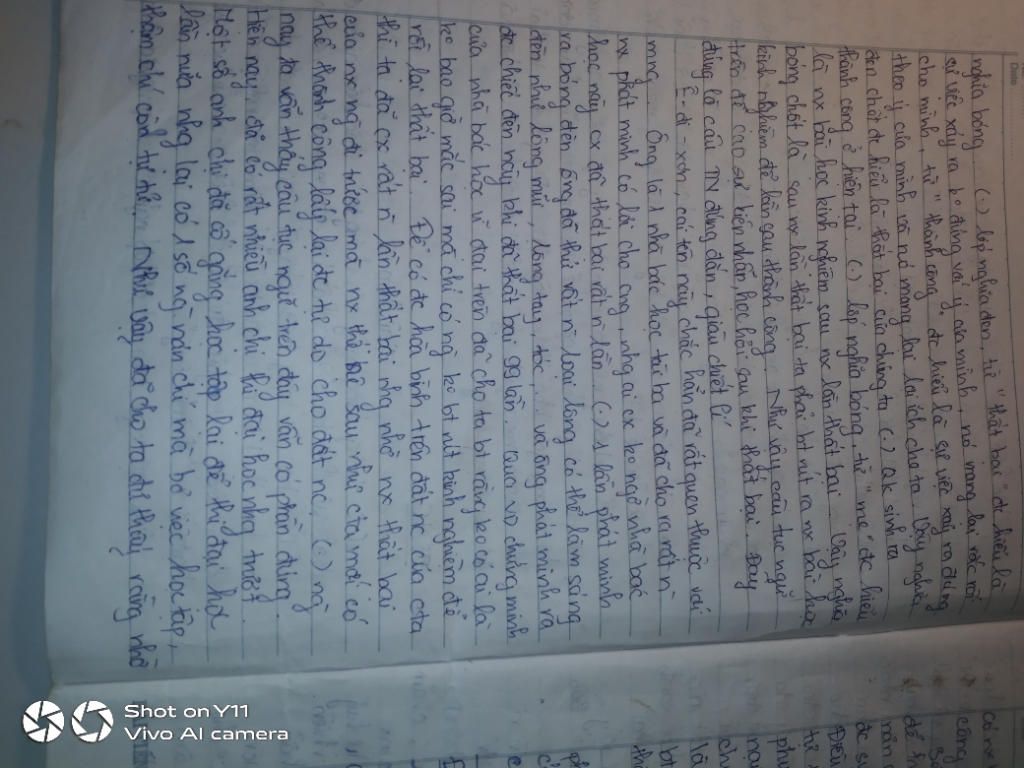 nghĩa bóng. (.) lớp nghĩa đen, từ "thất bại" đc hiểu là
sự việc xảy ra ko đúng với ý của mình, nó mang lại rắc rối
cho mình, từ "thành công" đc hiểu là sự việc xảy ra đúng
theo ý của mình và nó mang lại lợi ích cho ta. Vậy nghĩa
đen chỉ đc hiểu là thất bại của chúng ta (.) qk sinh ra
thành công ở hiện tại. (.) lớp nghĩa bóng, từ "mẹ" đc hiểu
là nx bài học kinh nghiệm sau nx lần thất bại. Vậy nghĩa
bóng chốt là sau nx lần thất bại ta phải bt rút ra nx bài học
kinh nghiệm để lần sau thành công. Như vậy câu tục ngữ
trên đề cao sự bền nhẫn, học hỏi sau khi thất bại. Đây
đúng là câu TN đúng đắn, giàu chiết lí.
Ê-đi-xơn, cái tên này chắc hẳn đã rất quen thuộc với
mng. Ông là 1 nhà bác học tài ba và đã cho ra rất n
nx phát minh có lợi cho mng, nhưng ai cx ko ngờ nhà bác
học này cx đã thất bại rất n lần. (.) 1 lần phát minh
ra bóng đèn ông đã thử rất n loại lông có thể làm sáng
đèn như lông mũi, lông tay, tóc,... và ông phát minh ra
đc chiếc đèn này khi đã thất bại 99 lần. qua v chứng minh
của nhà bác học vĩ đại trên đã cho ta bt rằng ko có ai là
ko bao giờ mắc sai mà chỉ có ng ko bt rút kinh nghiệm để
rồi lại thất bại. Để có đc hòa bình trên đất nc của cta
thì ta đã cx rất n lần thất bại nhg nhờ nx thất bại
của nx ng đi trước mà nx thế hệ sau như cta mới có
thể thành công lấy lại đc tự do cho đất nc. (.) ng
nay ta vẫn thấy câu tục ngữ trên đây vẫn có phần đúng.
Hiện nay, đã có rất nhiều anh chị thi đại học nhg trượt.
Một số anh chị đã cố gắng học tập lại để thi đại học
lần nữa nhg lại có 1 số ng nản chí mà bỏ việc học tập,
thậm chí còn tự tử. Như vậy đã cho ta đc thấy rằng nhờ
Shot on Y11
Vivo AI camera